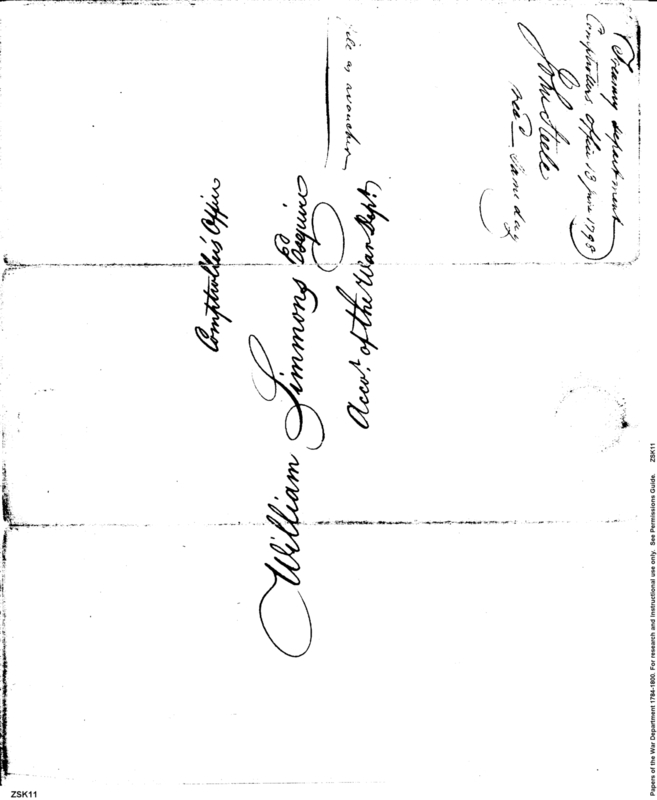 Treasury department
Comptrollers Office 13 June 1798
John Steele
recd same day
file as voucher
Comptroller's Office
William Simmons Esquire
Accot. of the War Dept.
Papers of the War Department 1784-1800. For research and instructional use only. See Permissions Guide. ZSK11
ZSK11